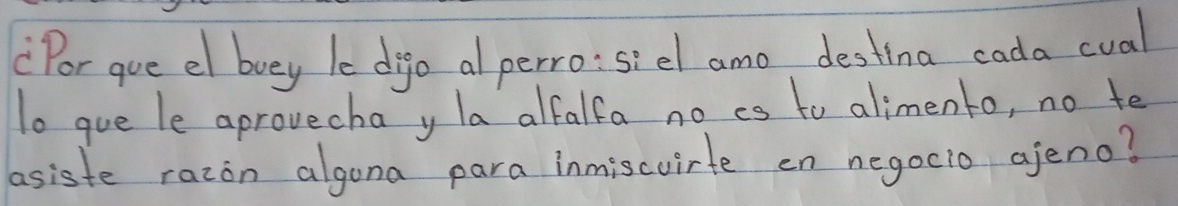 ¿Por que el buey le dijo al perro: si el amo destina cada cual
lo que le aprovecha y la alfalfa no es tu alimento, no te
asiste razón alguna para inmiscuirte en negocio ajeno?